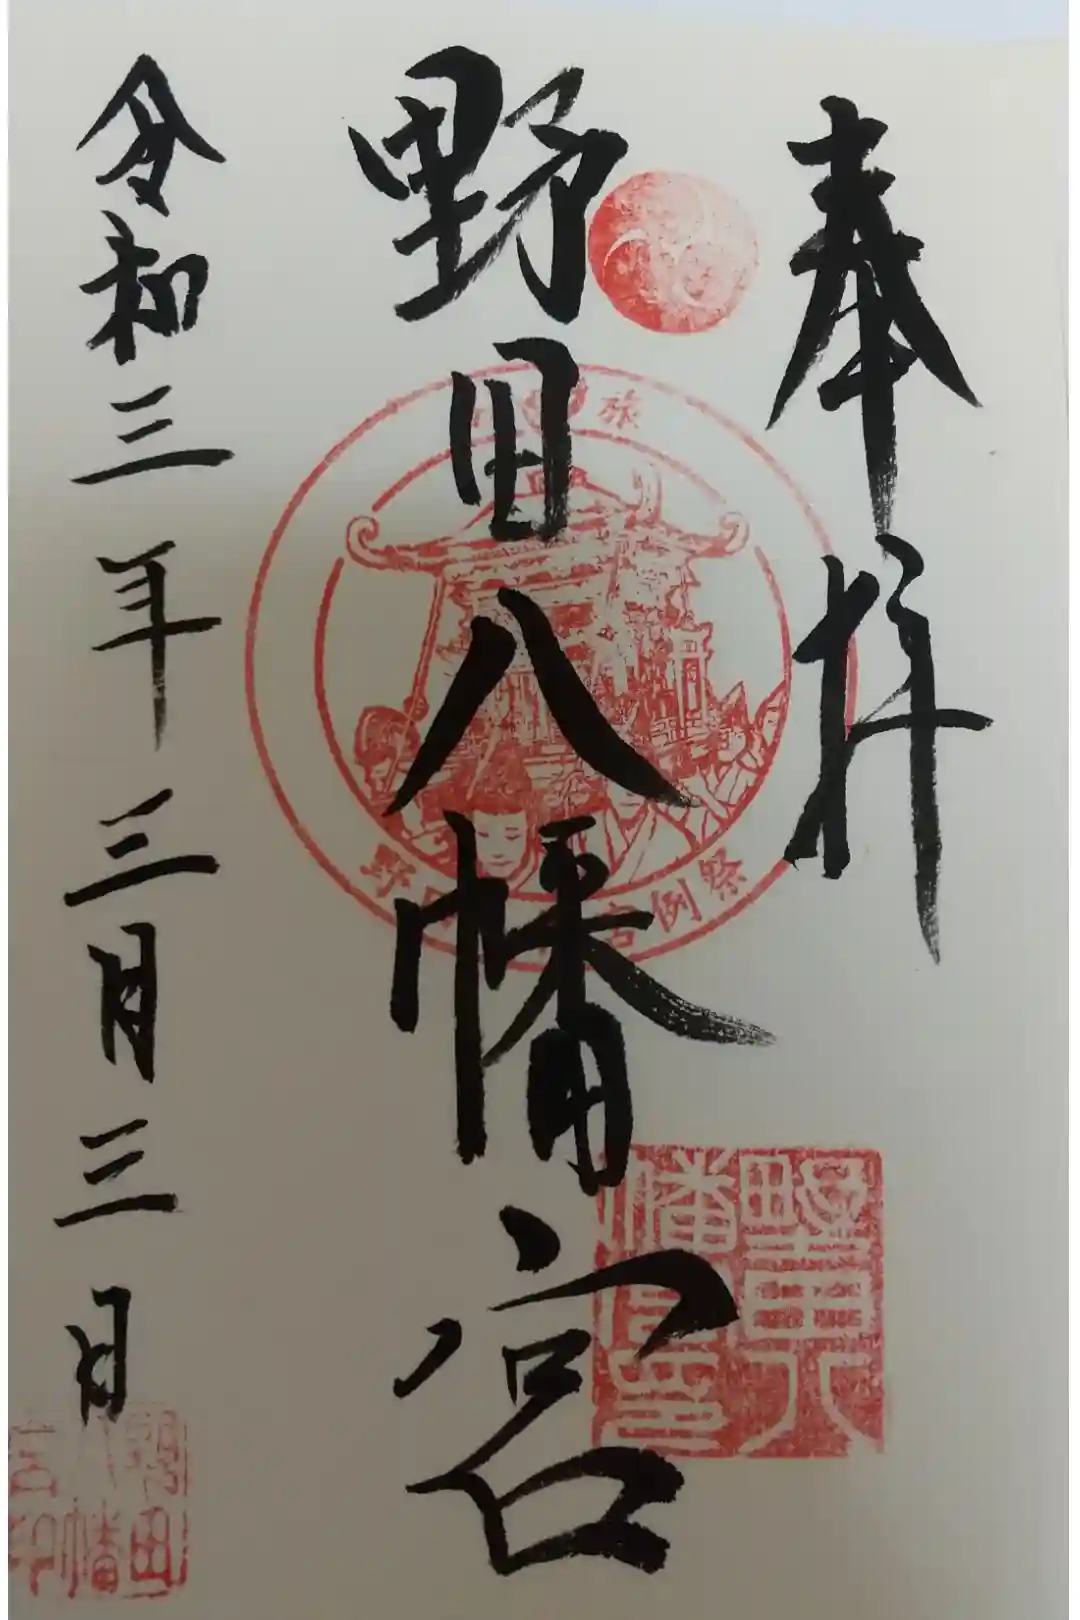 奉拝
野田八幡宮
令和三年三月三日
旅
野田
宮例祭
野田八
幡宮印
野田
八幡
宮印